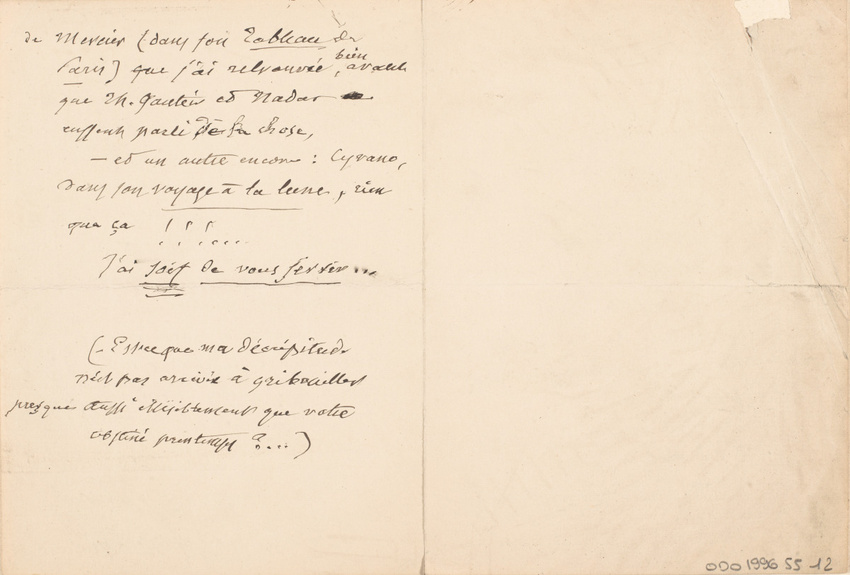 de Mercier (dans son Tableau de
Paris) que j'ai retrouvée, bien avant
que Th. Gautier et Nadar
eussent parlé de la chose,
— et un autre encore : Cyrano,
dans son voyage à la lune, rien
que ça ! ! ! .....
J'ai soif de vous fester ...
(Est-ce que ma décrépitude
n'est pas arrivée à gribouiller
presque aussi illisiblement que votre
obstiné printemps ?...)
ODO 1996 55 12